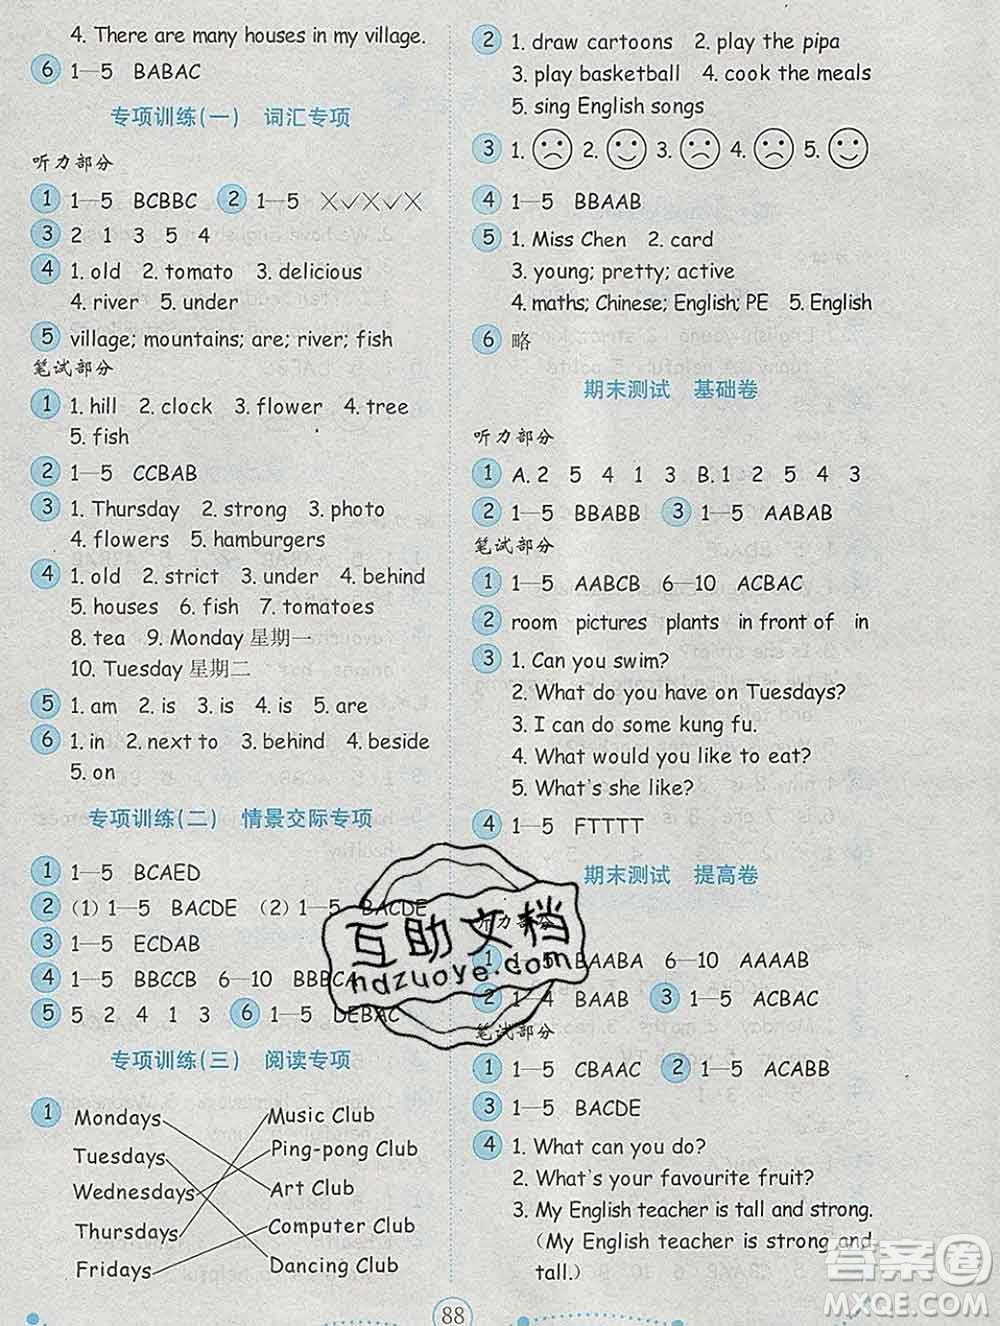 4. There are many houses in my village.
6 1—5 BABAC
专项训练(一) 词汇专项
听力部分
1 1—5 BCBBC 2 1—5 ×✓×✓×
3 2 1 3 5 4
4 1. old 2. tomato 3. delicious
4. river 5. under
5 village; mountains; are; river; fish
笔试部分
1 1. hill 2. clock 3. flower 4. tree
5. fish
2 1—5 CCBAB
3 1. Thursday 2. strong 3. photo
4. flowers 5. hamburgers
4 1. old 2. strict 3. under 4. behind
5. houses 6. fish 7. tomatoes
8. tea 9. Monday 星期一
10. Tuesday 星期二
5 1. am 2. is 3. is 4. is 5. are
6 1. in 2. next to 3. behind 4. beside
5. on
专项训练(二) 情景交际专项
1 1—5 BCAED
2 (1) 1—5 BACDE (2) 1—5 BACDE
3 1—5 ECDAB
4 1—5 BBCCB 6—10 BBBCA
5 5 2 4 1 3 6 1—5 DEBAC
专项训练(三) 阅读专项
1 Mondays Music Club
Tuesdays Ping-pong Club
Wednesdays Art Club
Thursdays Computer Club
Fridays Dancing Club
2 1. draw cartoons 2. play the pipa
3. play basketball 4. cook the meals
5. sing English songs
3 1. 2. 3. 4. 5.
4 1—5 BBAAB
5 1. Miss Chen 2. card
3. young; pretty; active
4. maths; Chinese; English; PE 5. English
6 略
期末测试 基础卷
听力部分
1 A. 2 5 4 1 3 B. 1 2 5 4 3
2 1—5 BBABB 3 1—5 AABAB
笔试部分
1 1—5 AABCB 6—10 ACBAC
2 room pictures plants in front of in
3 1. Can you swim?
2. What do you have on Tuesdays?
3. I can do some kung fu.
4. What would you like to eat?
5. What's she like?
4 1—5 FTTTT
期末测试 提高卷
听力部分
1 1—5 BAABA 6—10 AAAAB
2 1—4 BAAB 3 1—5 ACBAC
笔试部分
1 1—5 CBAAC 2 1—5 ACABB
3 1—5 BACDE
4 1. What can you do?
2. What's your favourite fruit?
3. My English teacher is tall and strong.
(My English teacher is strong and
tall.)
88
互助文档
hdzuoye.com
答案圈
MXQE.COM